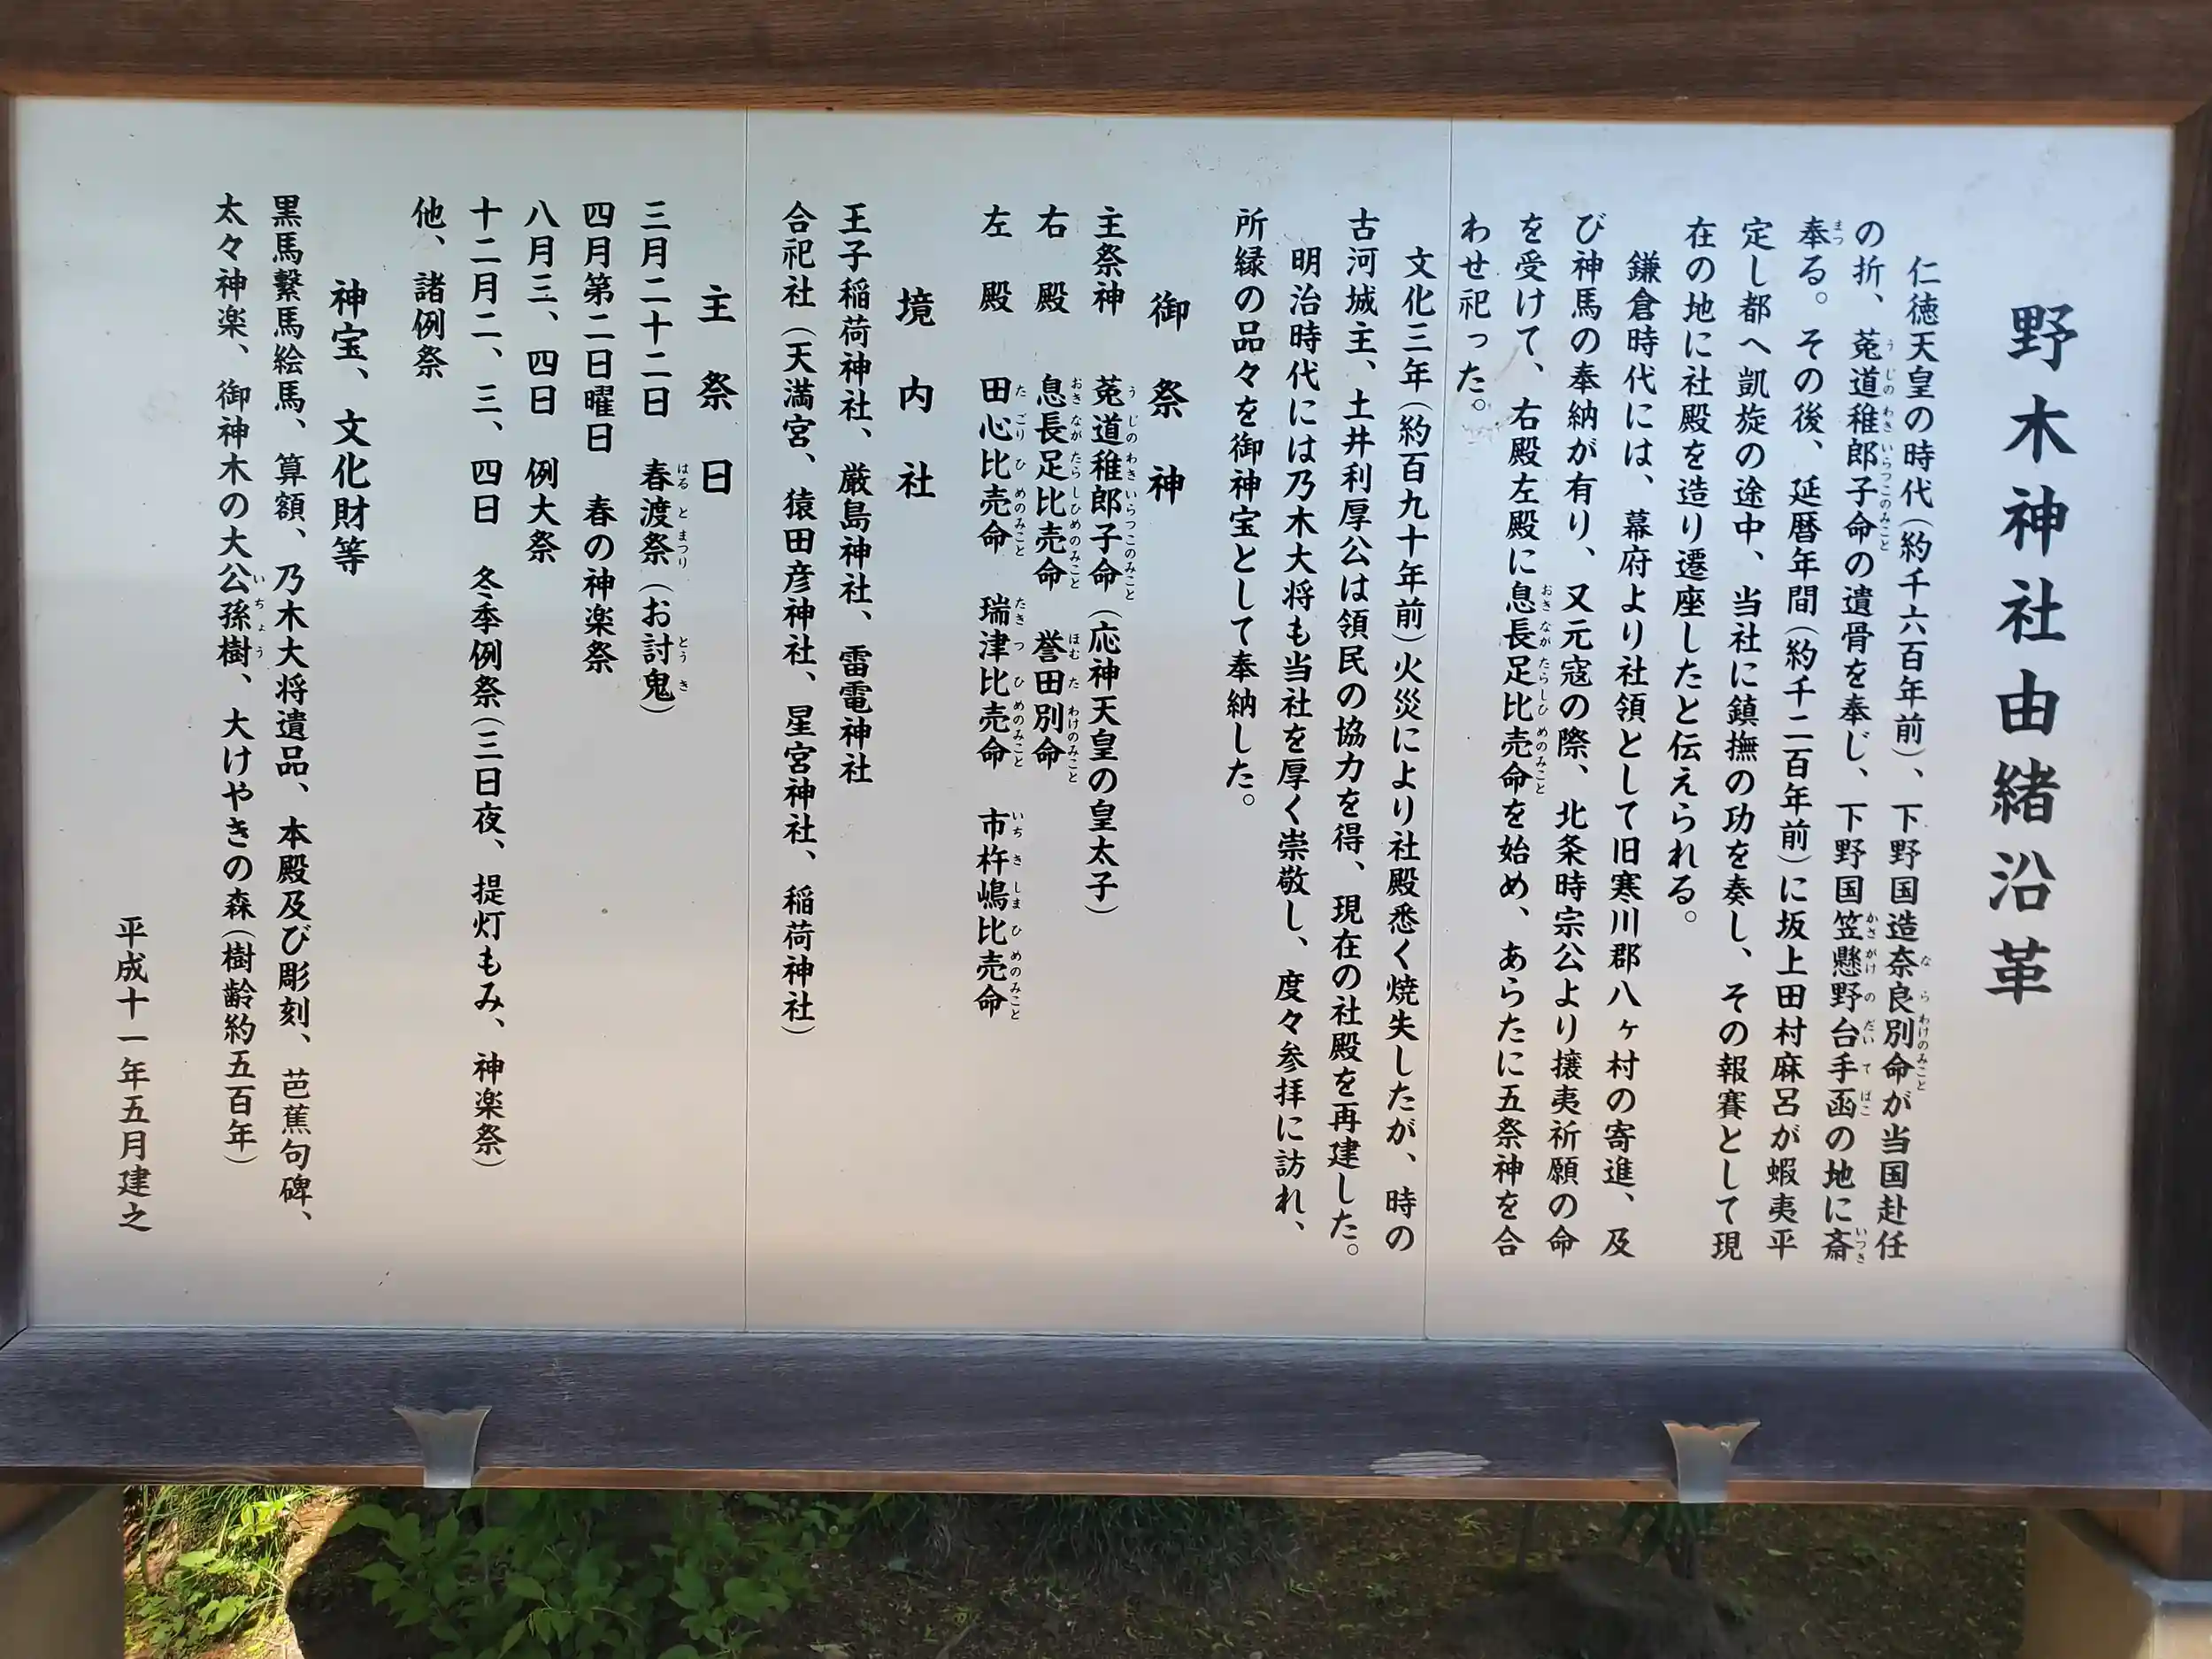 野木神社由緒沿革
仁徳天皇の時代（約千六百年前）、下野国造奈良別命が当国赴任
の折、莵道稚郎子命の遺骨を奉じ、下野国笠懸野台手函の地に斎
奉る。その後、延暦年間（約千二百年前）に坂上田村麻呂が蝦夷平
定し都へ凱旋の途中、当社に鎮撫の功を奏し、その報賽として現
在の地に社殿を造り遷座したと伝えられる。
鎌倉時代には、幕府より社領として旧寒川郡八ヶ村の寄進、及
び神馬の奉納が有り、又元寇の際、北条時宗公より攘夷祈願の命
を受けて、右殿左殿に息長足比売命を始め、あらたに五祭神を合
わせ祀った。
文化三年（約百九十年前）火災により社殿悉く焼失したが、時の
古河城主、土井利厚公は領民の協力を得、現在の社殿を再建した。
明治時代には乃木大将も当社を厚く崇敬し、度々参拝に訪れ、
所縁の品々を御神宝として奉納した。
御祭神
主祭神　莵道稚郎子命（応神天皇の皇太子）
右殿　息長足比売命　誉田別命
左殿　田心比売命　瑞津比売命　市杵嶋比売命
境内社
王子稲荷神社、厳島神社、雷電神社
合祀社（天満宮、猿田彦神社、星宮神社、稲荷神社）
主祭日
三月二十二日　春渡祭（お討鬼）
四月第二日曜日　春の神楽祭
八月三、四日　例大祭
十二月二、三、四日　冬季例祭（三日夜、提灯もみ、神楽祭）
他、諸例祭
神宝、文化財等
黒馬繋馬絵馬、算額、乃木大将遺品、本殿及び彫刻、芭蕉句碑、
太々神楽、御神木の大公孫樹、大けやきの森（樹齢約五百年）
平成十一年五月建之